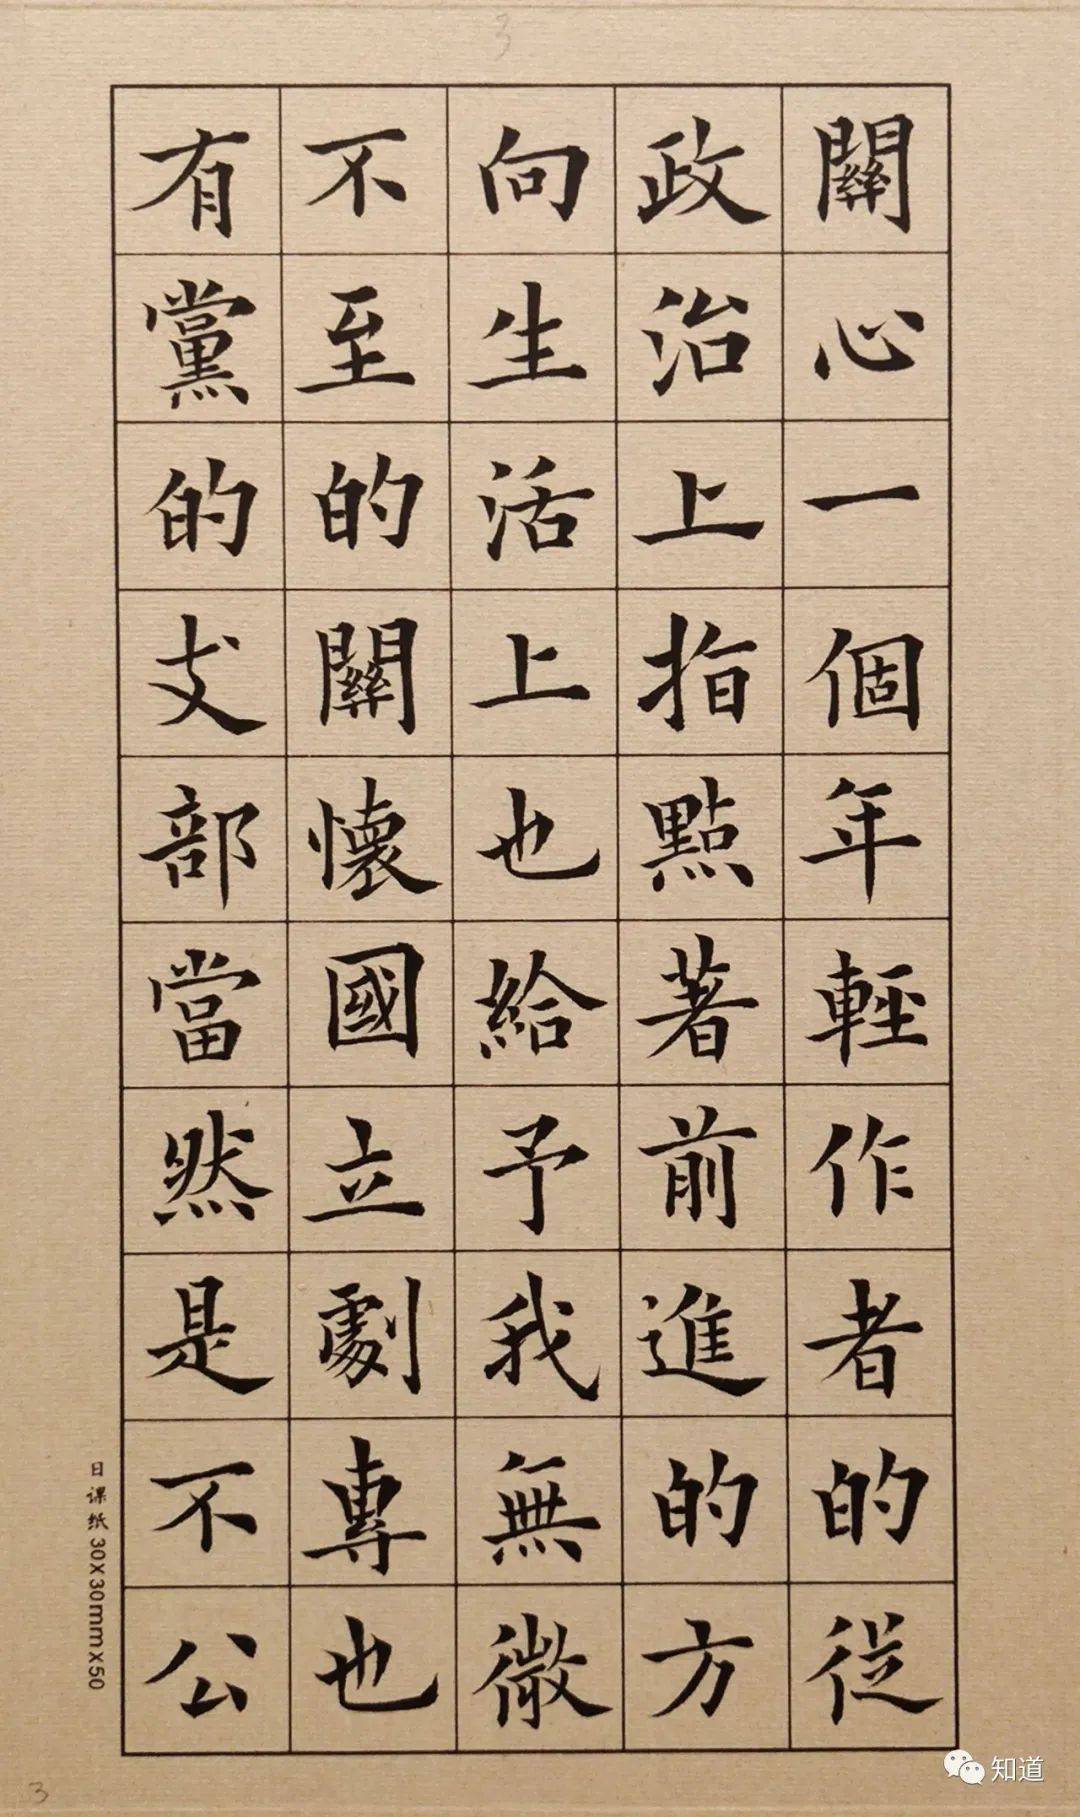 3
關心一個年輕作者的從
政治上指點著前進的方
向生活上也給予我無微
不至的關懷國立劇專也
有黨的支部當然是不公
日课纸 30x30mmx50
3
知道